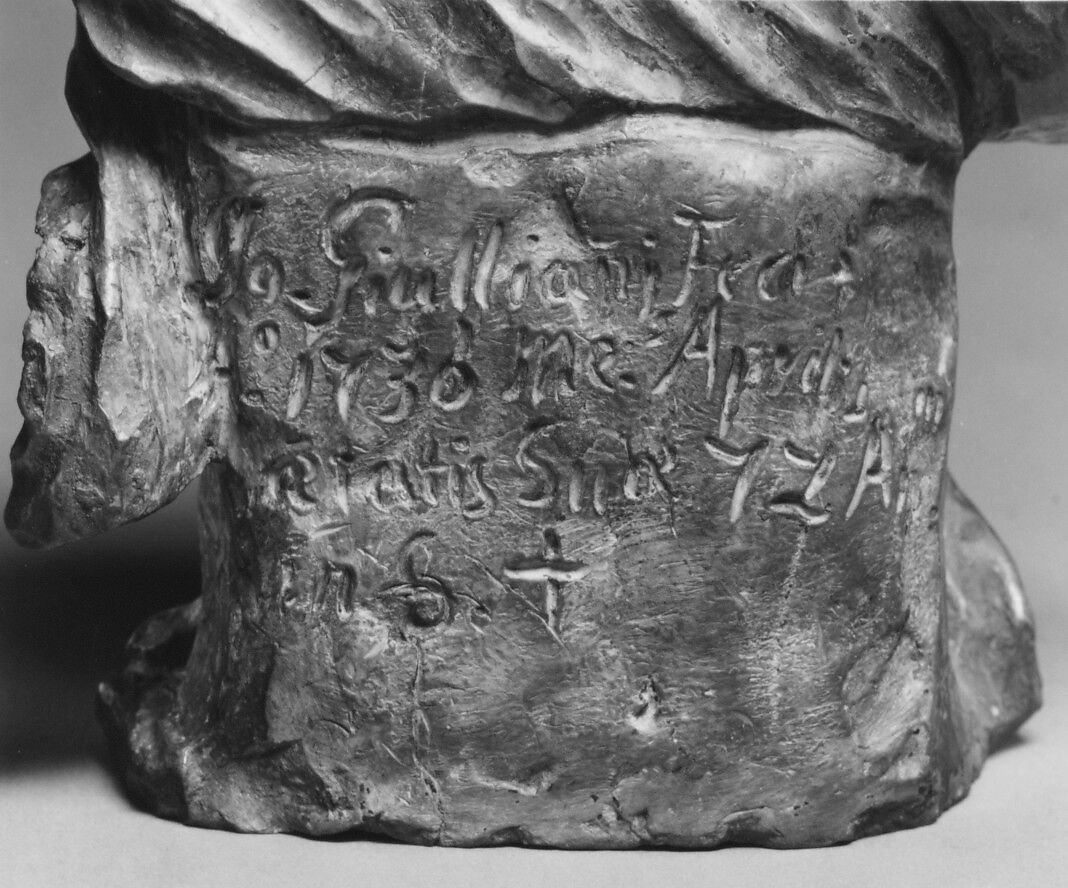 Jo Giulliani Feci+
Ao 1736 me: Aprilis
ætatis Suæ 72 A.
in 8. +